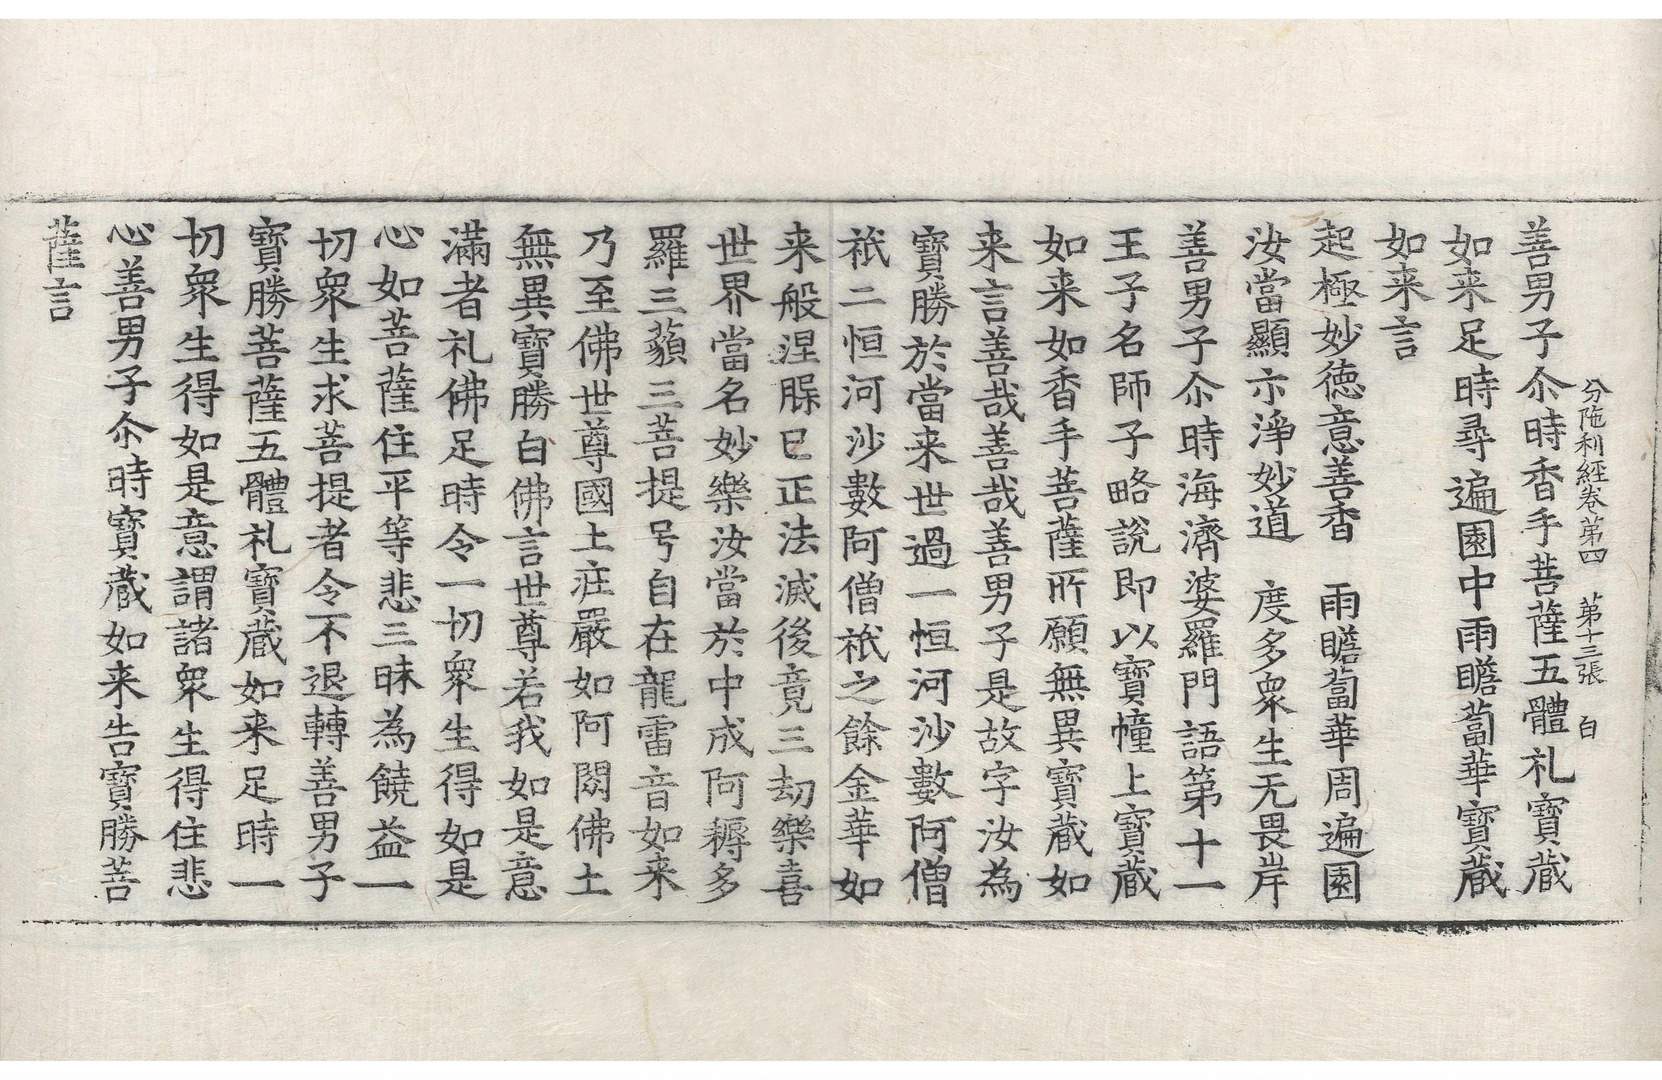 分陁利經卷第四　第十三張　白
善男子尒時香手菩薩五體礼寶蔵
如来足時尋遍園中雨瞻蔔華寶蔵
如来言
起極妙德意善香　雨瞻蔔華周遍園
汝當顯示淨妙道　度多衆生无畏岸
善男子尒時海濟婆羅門語第十一
王子名師子略說即以寶幢上寶蔵
如来如香手菩薩所願無異寶蔵如
来言善哉善哉善男子是故字汝為
寶勝於當来世過一恒河沙數阿僧
祇二恒河沙數阿僧祇之餘金華如
来般涅槃已正法滅後竟三劫樂喜
世界當名妙樂汝當於中成阿耨多
羅三藐三菩提号自在龍雷音如来
乃至佛世尊國土莊嚴如阿閦佛土
無異寶勝白佛言世尊若我如是意
滿者礼佛足時令一切衆生得如是
心如菩薩住平等悲三昧為饒益一
切衆生求菩提者令不退轉善男子
寶勝菩薩五體礼寶蔵如来足時一
切衆生得如是意謂諸衆生得住悲
心善男子尒時寶蔵如来告寶勝菩
薩言